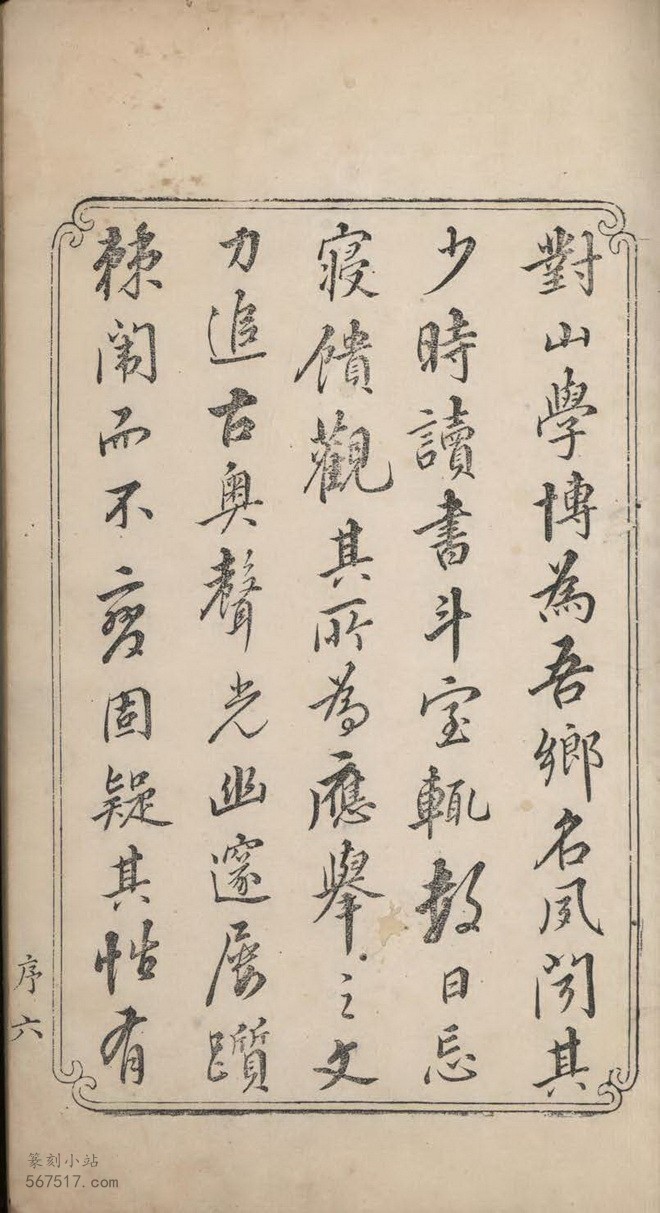 對山學博為吾鄉名夙聞其
少時讀書斗室輒數日忘
寢饋觀其所為應舉之文
力追古奧聲光幽邃屢躓
棘闈而不變固疑其性有
序六
篆刻小站
567517.com